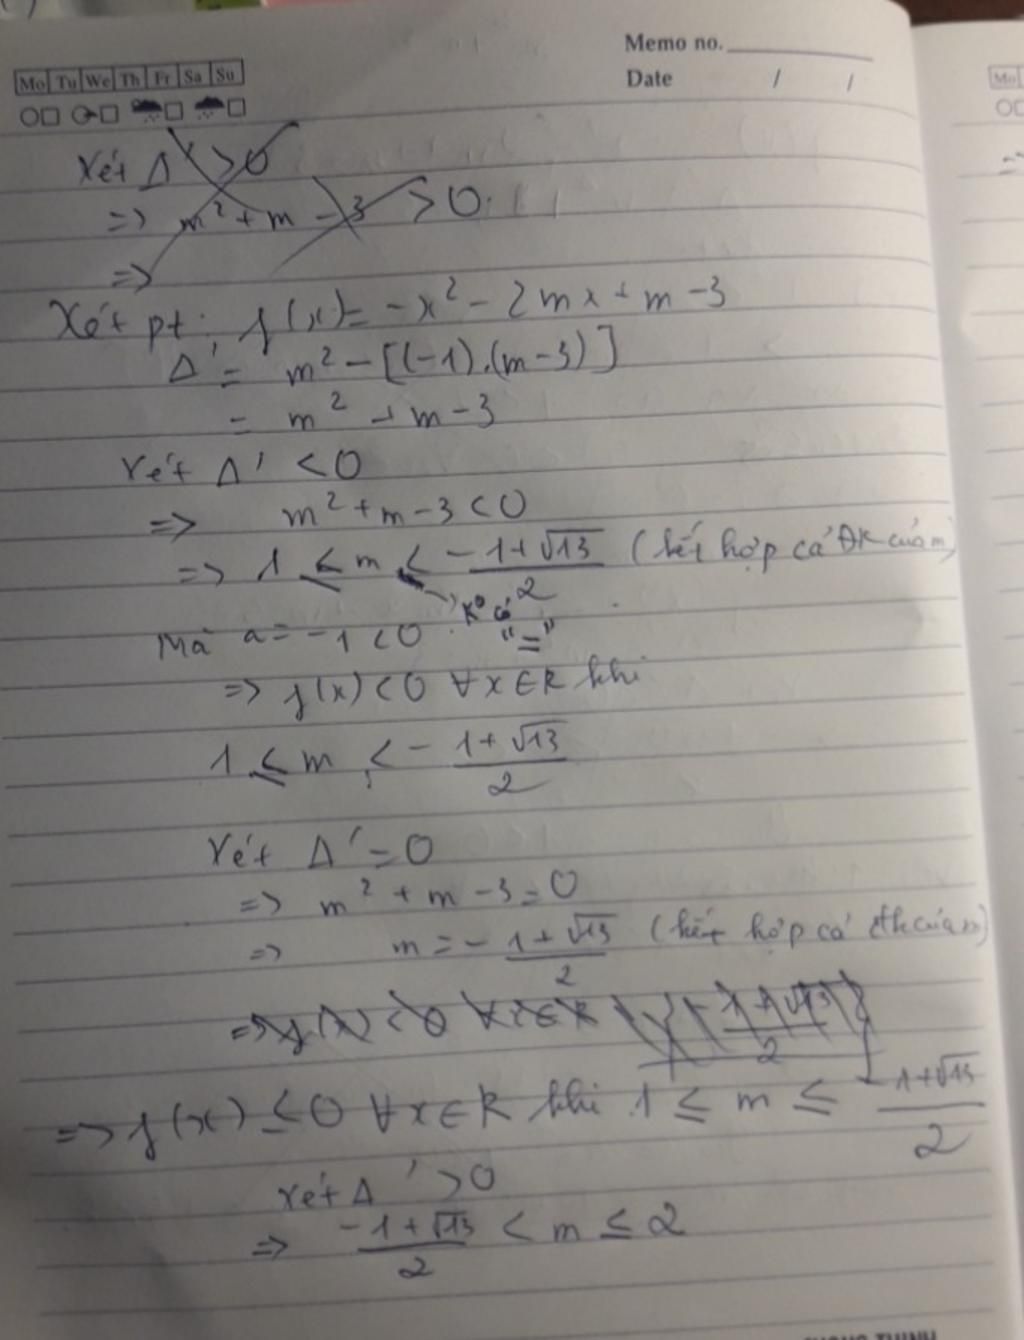 Memo no.
Mo Tu We Th Fr Sa Su
Date / /
Mo
Xét Δ' > 0
=> m² + m - 3 > 0
=>
=>
Xét pt: f(x) = -x² - 2mx + m - 3
Δ' = m² - [(-1).(m-3)]
= m² + m - 3
Xét Δ' < 0
=> m² + m - 3 < 0
=> 1 ≤ m < -1+√13 / 2 (kết hợp cả ĐK của m)
K° có "="
Mà a = -1 < 0
=> f(x) < 0 ∀x∈R khi
1 ≤ m < -1+√13 / 2
Xét Δ' = 0
=> m² + m - 3 = 0
=> m = -1+√13 / 2 (kết hợp cả đk của m)
=> f(x) < 0 ∀x∈R \ { -1+√13 / 2 }
=> f(x) ≤ 0 ∀x∈R khi 1 ≤ m ≤ -1+√13 / 2
Xét Δ' > 0
=> -1+√13 / 2 < m ≤ 2